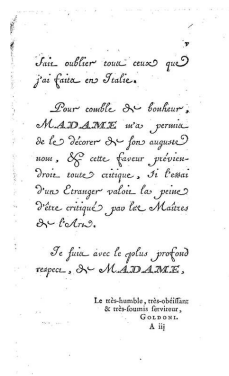 v
fait oublier tous ceux que
j'ai faits en Italie.
Pour comble de bonheur,
MADAME m'a permis
de le décorer de son auguste
nom, & cette faveur préviendroit
toute critique, si l'essai
d'un Etranger valoit la peine
d'être critiqué par les Maîtres
de l'Art.
Je suis avec le plus profond
respect, de MADAME,
Le très-humble, très-obéissant
& très-soumis serviteur,
GOLDONI.
A iij